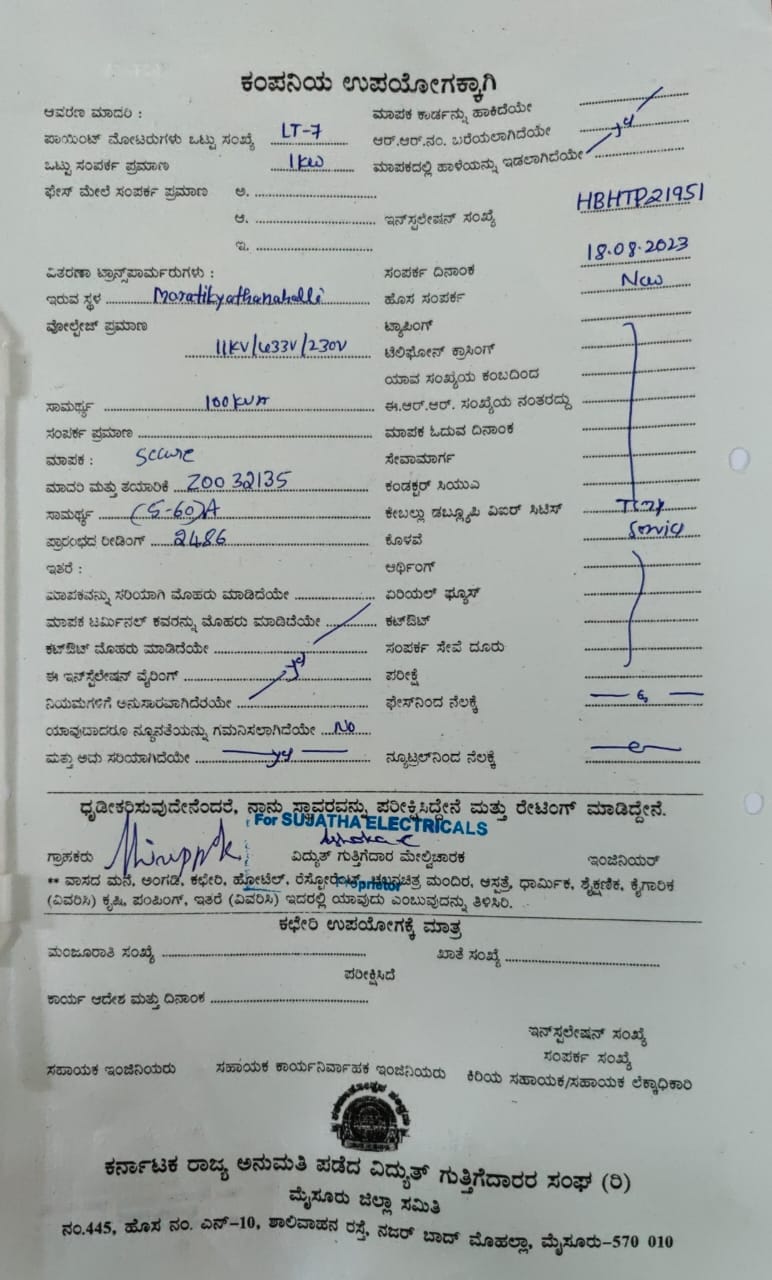 ಕಂಪನಿಯ ಉಪಯೋಗಕ್ಕಾಗಿ
ಆವರಣ ಮಾದರಿ :
ಮಾಪಕ ಕಾರ್ಡನ್ನು ಹಾಕಿದೆಯೇ
ಪಾಯಿಂಟ್ ಮೋಟರುಗಳು ಒಟ್ಟು ಸಂಖ್ಯೆ LT-7
ಆರ್.ಆರ್.ನಂ. ಬರೆಯಲಾಗಿದೆಯೇ
ಒಟ್ಟು ಸಂಪರ್ಕ ಪ್ರಮಾಣ 1kw
ಮಾಪಕದಲ್ಲಿ ಹಾಳೆಯನ್ನು ಇಡಲಾಗಿದೆಯೇ
ಫೇಸ್ ಮೇಲೆ ಸಂಪರ್ಕ ಪ್ರಮಾಣ ಅ.
ಆ.
ಇನ್‌ಸ್ಟಲೇಷನ್ ಸಂಖ್ಯೆ HBHTP21951
ಇ.
ವಿತರಣಾ ಟ್ರಾನ್ಸ್‌ಪಾರ್ಮರುಗಳು :
ಸಂಪರ್ಕ ದಿನಾಂಕ 18.08.2023
ಇರುವ ಸ್ಥಳ Maratikyathanahalli
ಹೊಸ ಸಂಪರ್ಕ New
ವೋಲ್ಟೇಜ್ ಪ್ರಮಾಣ 11KV/433V/230V
ಟ್ಯಾಪಿಂಗ್
ಟೆಲಿಫೋನ್ ಕ್ರಾಸಿಂಗ್
ಯಾವ ಸಂಖ್ಯೆಯ ಕಂಬದಿಂದ
ಸಾಮರ್ಥ್ಯ 100KVA
ಈ.ಆರ್.ಆರ್. ಸಂಖ್ಯೆಯ ನಂತರದ್ದು
ಸಂಪರ್ಕ ಪ್ರಮಾಣ
ಮಾಪಕ ಓದುವ ದಿನಾಂಕ
ಮಾಪಕ : Secure
ಸೇವಾಮಾರ್ಗ
ಮಾದರಿ ಮತ್ತು ತಯಾರಿಕೆ Z0032135
ಕಂಡಕ್ಟರ್ ಸಿಯುಎ
ಸಾಮರ್ಥ್ಯ (5-60)A
ಕೇಬಲ್ಲು ಡಬ್ಲ್ಯೂಪಿ ವಿಐರ್ ಸಿಟಿಸ್
ಪ್ರಾರಂಭದ ರೀಡಿಂಗ್ 2486
ಕೊಳವೆ
ಇತರೆ :
ಆರ್ಥಿಂಗ್
ಮಾಪಕವನ್ನು ಸರಿಯಾಗಿ ಮೊಹರು ಮಾಡಿದೆಯೇ
ಏರಿಯಲ್ ಫ್ಯೂಸ್
ಮಾಪಕ ಟರ್ಮಿನಲ್ ಕವರನ್ನು ಮೊಹರು ಮಾಡಿದೆಯೇ
ಕಟ್‌ಔಟ್
ಕಟ್‌ಔಟ್ ಮೊಹರು ಮಾಡಿದೆಯೇ
ಸಂಪರ್ಕ ಸೇವೆ ದೂರು
ಈ ಇನ್‌ಸ್ಟೆಲೇಷನ್ ವೈರಿಂಗ್
ಪರೀಕ್ಷೆ
ನಿಯಮಗಳಿಗೆ ಅನುಸಾರವಾಗಿದೆರಯೇ
ಫೇಸ್‌ನಿಂದ ನೆಲಕ್ಕೆ
ಯಾವುದಾದರೂ ನ್ಯೂನತೆಯನ್ನು ಗಮನಿಸಲಾಗಿದೆಯೇ No
ಮತ್ತು ಅದು ಸರಿಯಾಗಿದೆಯೇ
ನ್ಯೂಟ್ರಲ್‌ನಿಂದ ನೆಲಕ್ಕೆ
ಧೃಡೀಕರಿಸುವುದೇನೆಂದರೆ, ನಾನು ಸ್ಥಾವರವನ್ನು ಪರೀಕ್ಷಿಸಿದ್ದೇನೆ ಮತ್ತು ರೇಟಿಂಗ್ ಮಾಡಿದ್ದೇನೆ.
For SUJATHA ELECTRICALS
ಗ್ರಾಹಕರು ವಿದ್ಯುತ್ ಗುತ್ತಿಗೆದಾರ ಮೇಲ್ವಿಚಾರಕ ಇಂಜಿನಿಯರ್
** ವಾಸದ ಮನೆ, ಅಂಗಡಿ, ಕಛೇರಿ, ಹೋಟೆಲ್, ರೆಸ್ಟೋರೆಂಟ್, ಚಲನಚಿತ್ರ ಮಂದಿರ, ಆಸ್ಪತ್ರೆ, ಧಾರ್ಮಿಕ, ಶೈಕ್ಷಣಿಕ, ಕೈಗಾರಿಕ
Proprietor
(ವಿವರಿಸಿ) ಕೃಷಿ, ಪಂಪಿಂಗ್, ಇತರೆ (ವಿವರಿಸಿ) ಇದರಲ್ಲಿ ಯಾವುದು ಎಂಬುವುದನ್ನು ತಿಳಿಸಿರಿ.
ಕಛೇರಿ ಉಪಯೋಗಕ್ಕೆ ಮಾತ್ರ
ಮಂಜೂರಾತಿ ಸಂಖ್ಯೆ
ಖಾತೆ ಸಂಖ್ಯೆ
ಪರೀಕ್ಷಿಸಿದೆ
ಕಾರ್ಯ ಆದೇಶ ಮತ್ತು ದಿನಾಂಕ
ಇನ್‌ಸ್ಟಲೇಷನ್ ಸಂಖ್ಯೆ
ಸಂಪರ್ಕ ಸಂಖ್ಯೆ
ಸಹಾಯಕ ಇಂಜಿನಿಯರು ಸಹಾಯಕ ಕಾರ್ಯನಿರ್ವಾಹಕ ಇಂಜಿನಿಯರು ಕಿರಿಯ ಸಹಾಯಕ/ಸಹಾಯಕ ಲೆಕ್ಕಾಧಿಕಾರಿ
ಕರ್ನಾಟಕ ರಾಜ್ಯ ಅನುಮತಿ ಪಡೆದ ವಿದ್ಯುತ್ ಗುತ್ತಿಗೆದಾರರ ಸಂಘ (ರಿ)
ಮೈಸೂರು ಜಿಲ್ಲಾ ಸಮಿತಿ
ನಂ.445, ಹೊಸ ನಂ. ಎನ್-10, ಶಾಲಿವಾಹನ ರಸ್ತೆ, ನಜರ್ ಬಾದ್ ಮೊಹಲ್ಲಾ, ಮೈಸೂರು-570 010